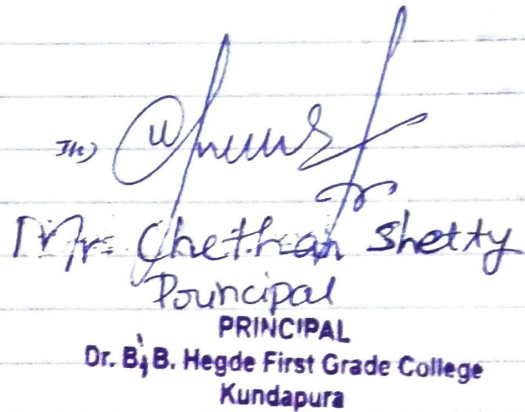 Mr. Chethan Shetty
Pouncipal
PRINCIPAL
Dr. B. B. Hegde First Grade College
Kundapura